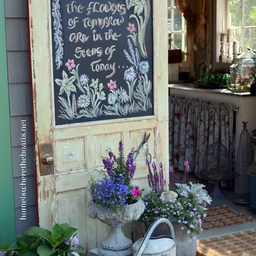 The flowers
of tomorrow
are in the
seeds of
today...
homeiswheretheboatis.net